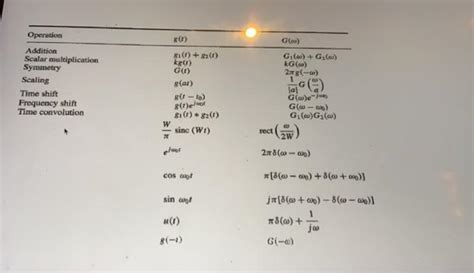 Operation g(t) G(ω)
Addition g₁(t) + g₂(t) G₁(ω) + G₂(ω)
Scalar multiplication kg(t) kG(ω)
Symmetry G(t) 2πg(−ω)
Scaling g(at) 1/|a| G(ω/a)
Time shift g(t − t₀) G(ω)e^−jωt₀
Frequency shift g(t)e^jω₀t G(ω − ω₀)
Time convolution g₁(t) * g₂(t) G₁(ω)G₂(ω)
W/π sinc (Wt) rect (ω/2W)
e^jω₀t 2πδ(ω − ω₀)
cos ω₀t π[δ(ω − ω₀) + δ(ω + ω₀)]
sin ω₀t jπ[δ(ω + ω₀) − δ(ω − ω₀)]
u(t) πδ(ω) + 1/jω
g(−t) G(−ω)